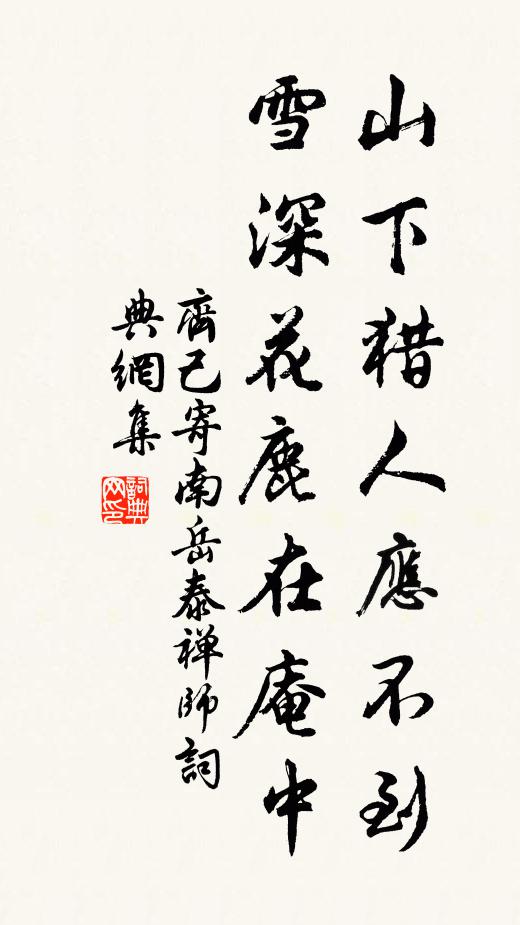 山下猎人應不到
雪深花鹿在庵中
齊己寄南岳泰禅師詞
典網集
詞典
网印